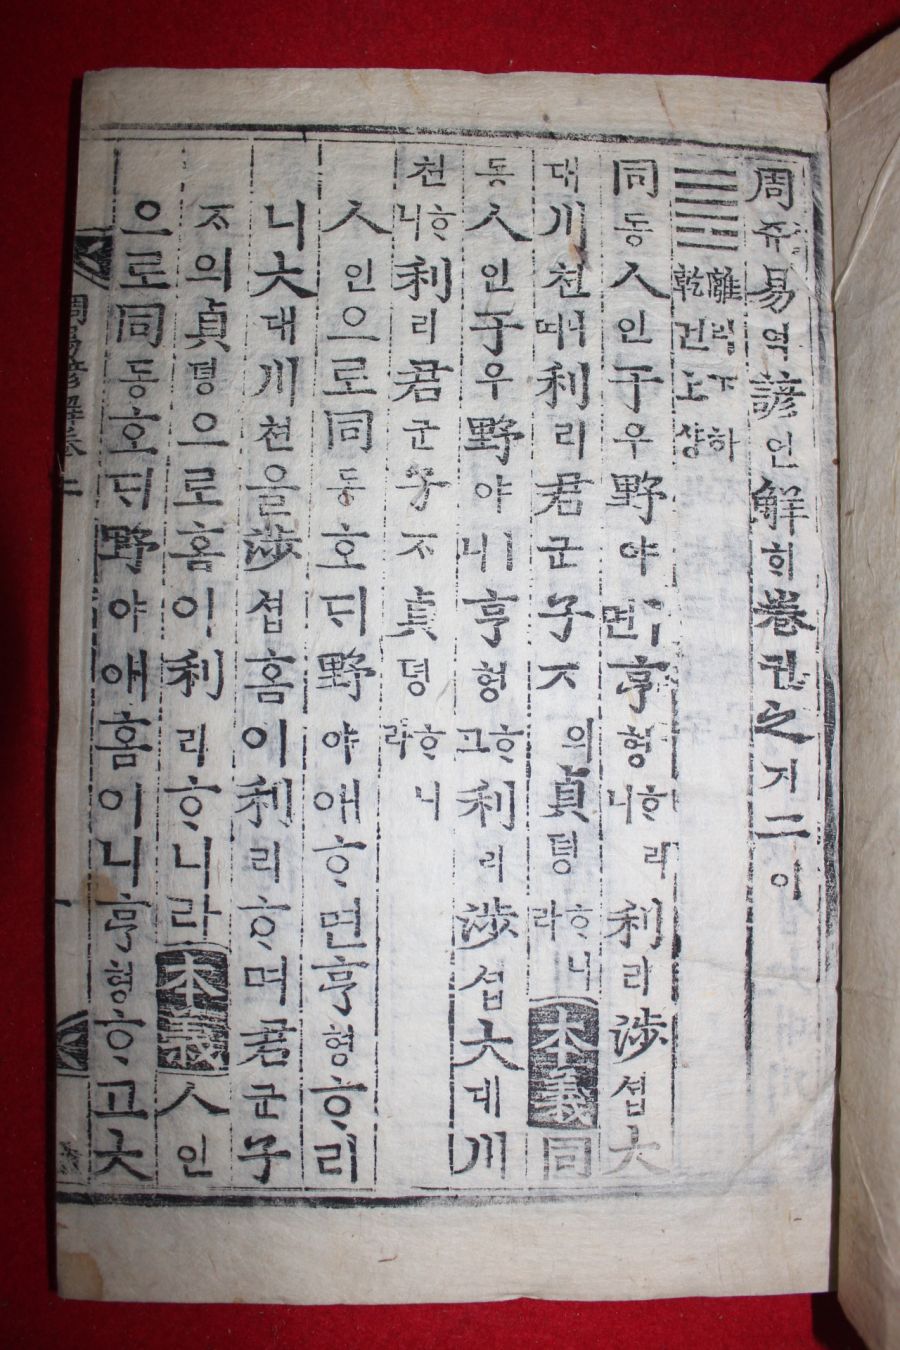 周쥬易역諺언解ᄒᆡ卷권之지二이
䷌離리下하乾건上샹
同동人인于우野야ㅣ면亨형ᄒᆞ니라利리涉셥大
대川쳔때利리君군子ᄌᆞ의貞뎡ᄒᆞ니라本義同
동人인于우野야ㅣ니亨형ᄒᆞ고利리涉셥大대川
쳔ᄒᆞ니利리君군子ᄌᆞ貞뎡ᄒᆞ니라
人인으로同동호ᄃᆡ野야애ᄒᆞ면亨형ᄒᆞ리
니大대川쳔을涉셥홈이利리ᄒᆞ며君군子
ᄌᆞ의貞뎡으로홈이利리ᄒᆞ니라本義人인
으로同동호ᄃᆡ野야애홈이니亨형ᄒᆞ고大
周易諺解卷二